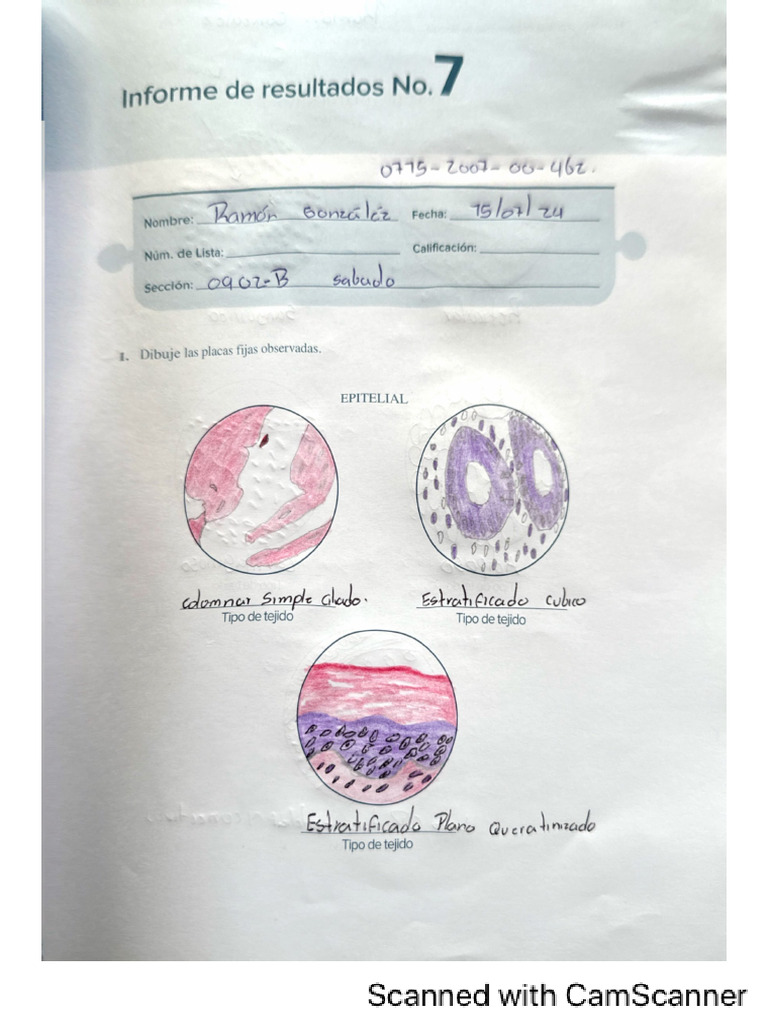 Informe de resultados No. 7
0775-2007-00-462.
Nombre: Ramón González Fecha: 15/07/24
Núm. de Lista: Calificación:
Sección: 0902-B sabado
1. Dibuje las placas fijas observadas.
EPITELIAL
colomnar simple cilado. Estratificado cubico
Tipo de tejido Tipo de tejido
Estratificado Plano Queratinizado
Tipo de tejido
Scanned with CamScanner